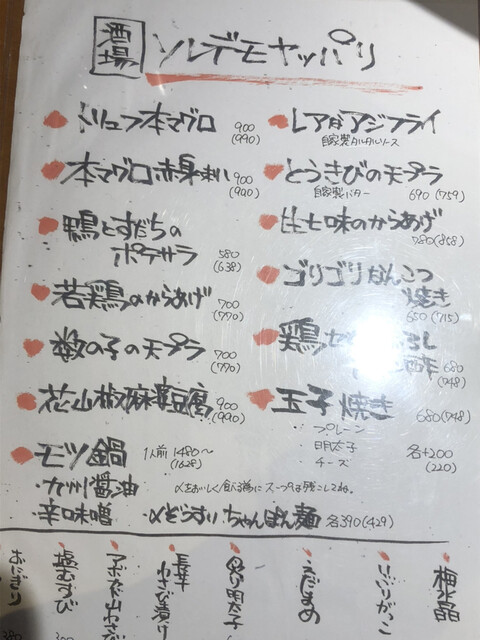 酒場 ソレデモヤッパリ
トリュフ本マグロ 900 (990)
本マグロ赤身 900 (990)
鴨とすだちの
ポテサラ 580 (638)
若鶏のからあげ 700 (770)
数の子の天プラ 700 (770)
花山椒麻婆豆腐 900 (990)
モツ鍋 1人前 1480〜 (1628)
・九州醤油
・辛味噌
レアなアジフライ
自家製タルタルソース
とうきびの天プラ
自家製バター 690 (759)
生七味のからあげ
780 (858)
ゴリゴリなんこつ
焼き
650 (715)
鶏
680 (748)
玉子焼き 680 (748)
・プレーン
・明太子
・チーズ
各+200 (220)
〆をおいしく食べる為に スープは残こしてね。
・〆ぞうすい・ちゃんぽん麺 各390 (429)
梅水晶
いぶりがっこ
えだまめ
明太子
長芋わさび漬け
塩むすび
おにぎり